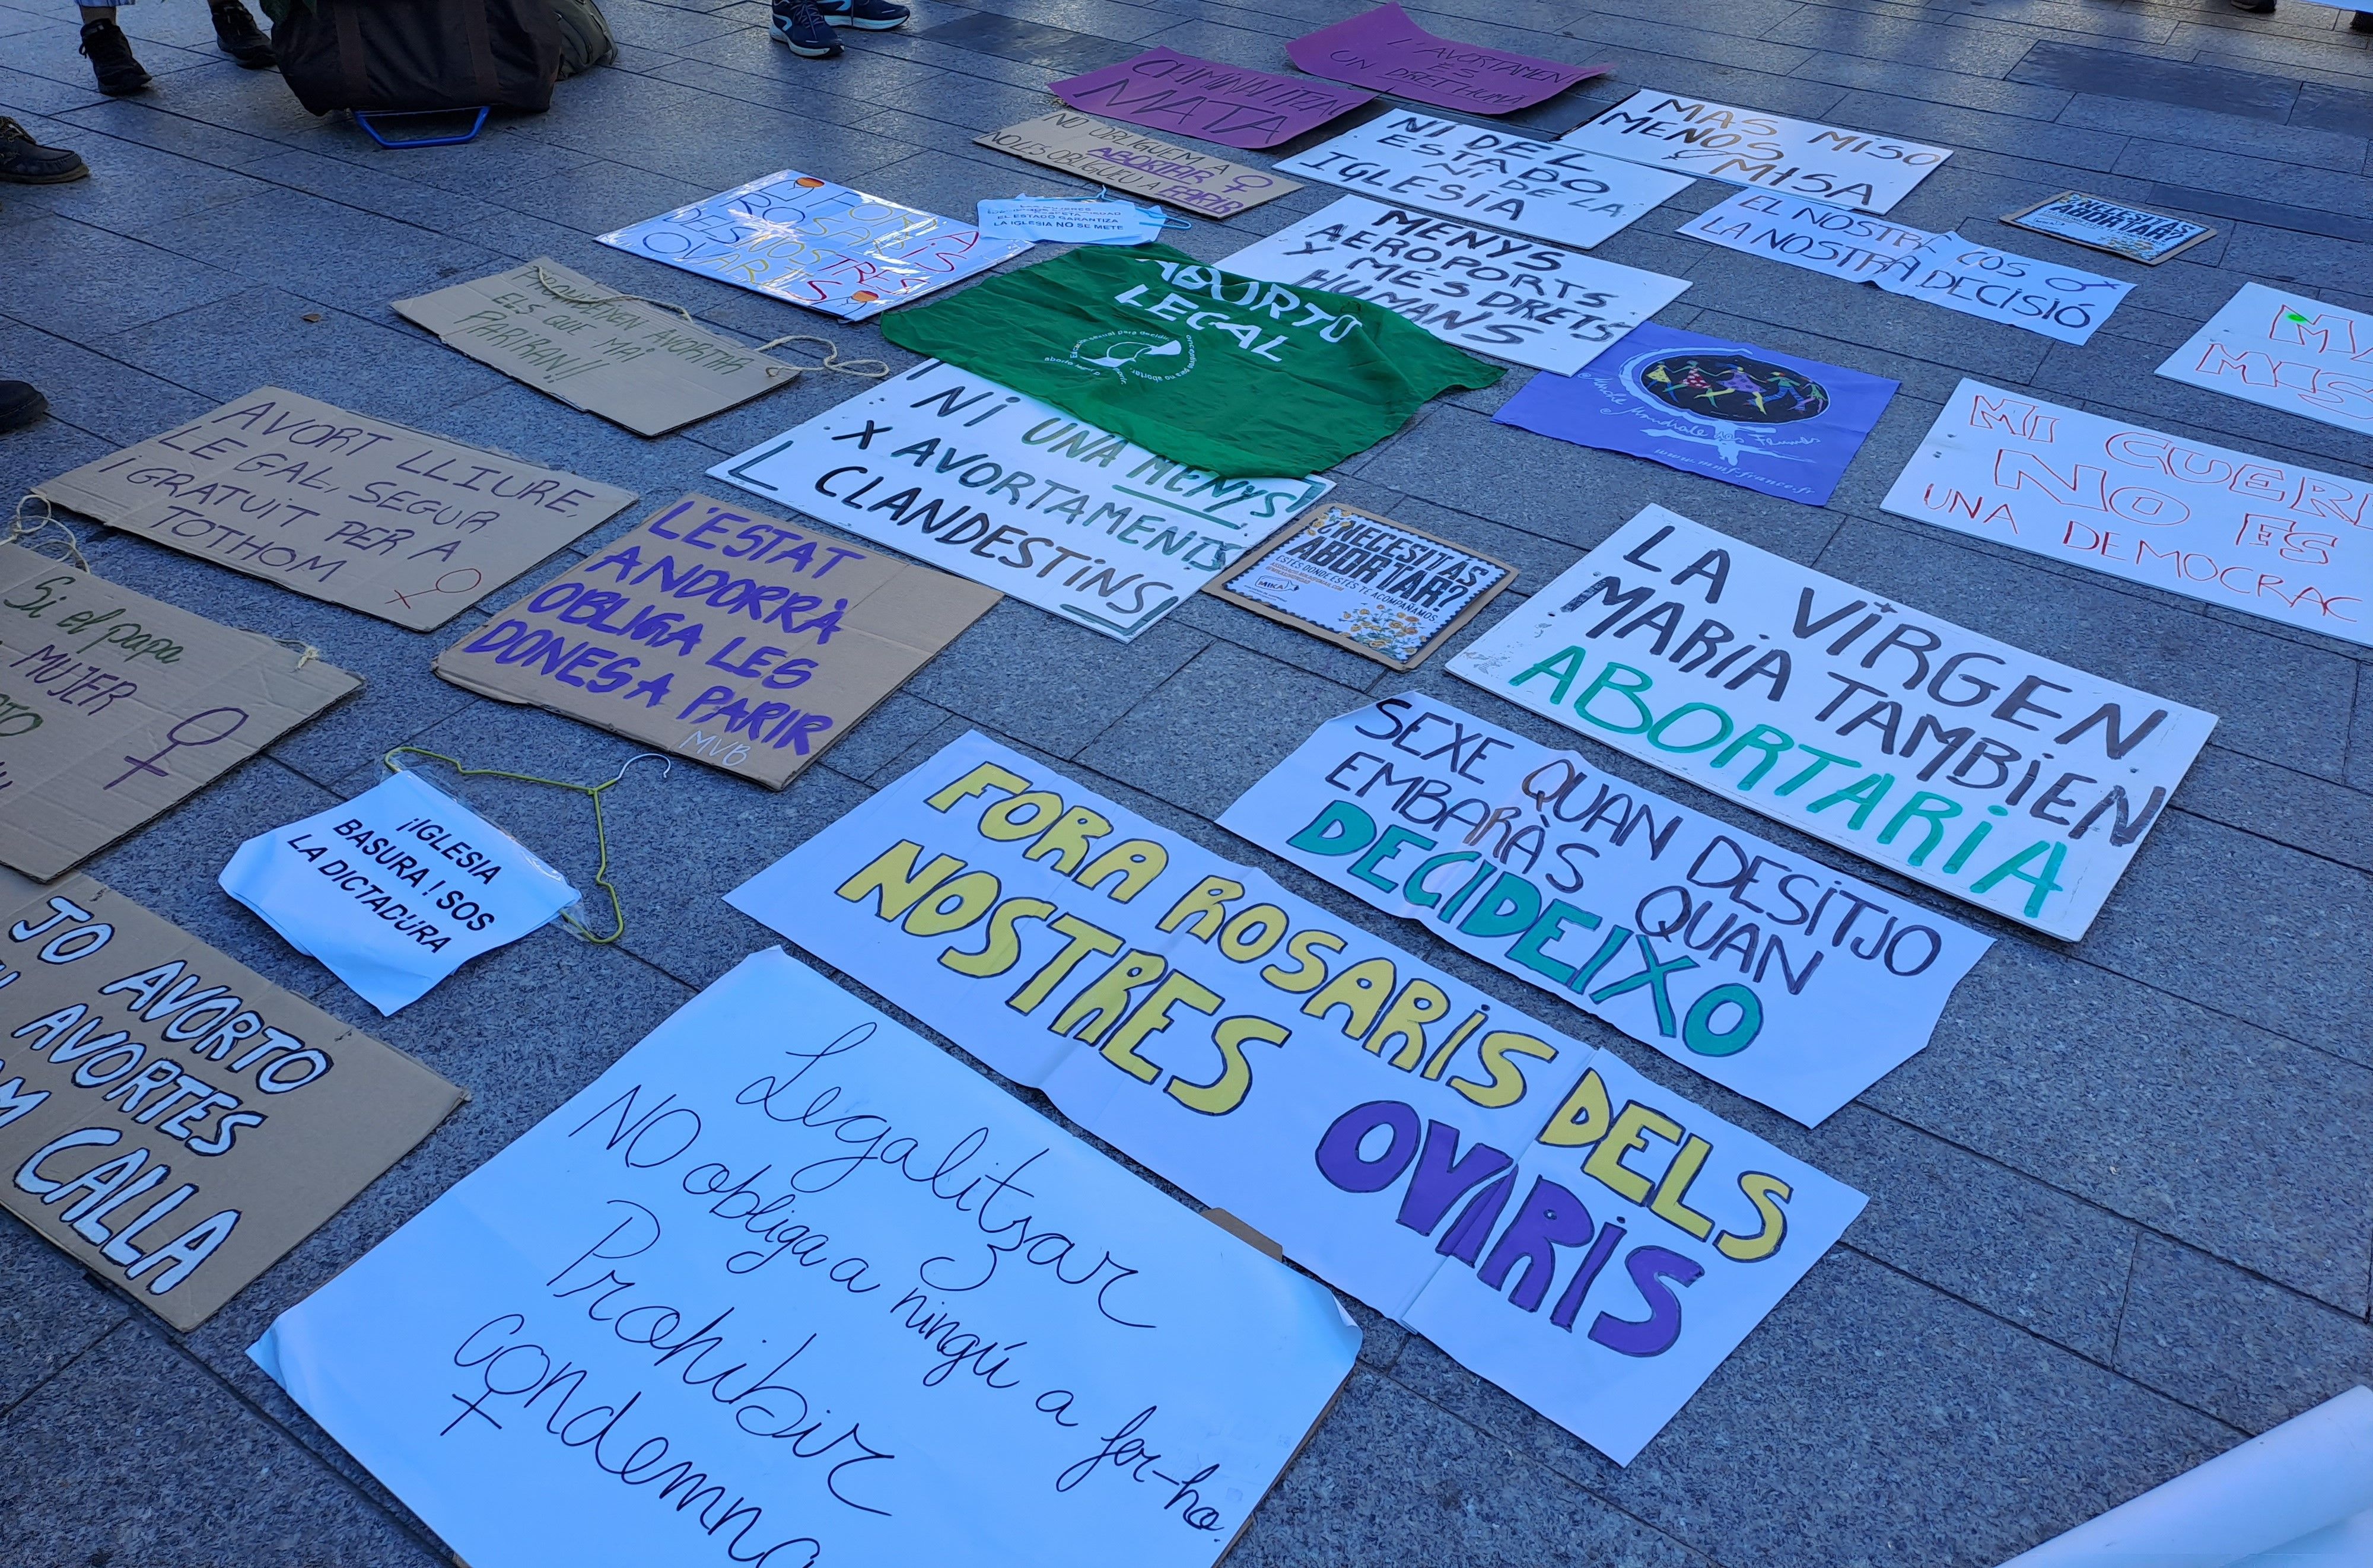 L'AVORTAMENT
ÉS
UN DRET HUMÀ
CRIMINALITZAR
MATA
NO OBLIGUEM A
ABORTAR
NO LES OBLIGUEU A PARIR
NI DEL
ESTADO
NI DE LA
IGLESIA
MAS MISO
MENOS
MISA
¿NECESITAS
ABORTAR?
EL NOSTRE COS
LA NOSTRA DECISIÓ
EL ESTADO GARANTIZA
LA IGLESIA NO SE METE
MENYS
AEROPORTS
X MÉS DRETS
HUMANS
ABORTO
LEGAL
PROHIBEIXEN AVORTAR
ELS QUE MAI
PARIRAN!!
Marche Mondiale des Femmes
www.mmf-france.fr
MI CUER
NO ES
UNA DEMOCRAC
AVORT LLIURE,
LEGAL, SEGUR
I GRATUiT PER A
TOTHOM
NI UNA MENYS
X AVORTAMENTS
CLANDESTiNS
¿NECESITAS
ABORTAR?
ESTÉS DONDE ESTÉS TE ACOMPAÑAMOS
L'ESTAT
ANDORRÀ
OBLIGA LES
DONES A PARIR
MVB
LA ViRGEN
MARiA TAMBiEN
ABORTARiA
Si el papa
MUJER
SEXE QUAN DESiTJO
EMBARÀS QUAN
DECIDEIXO
¡IGLESIA
BASURA ! SOS
LA DICTADURA
FORA ROSARiS DELS
NOSTRES OVARiS
JO AVORTO
AVORTES
CALLA
Legalitzar
NO obliga a ningú a fer-ho.
Prohibir
condemna